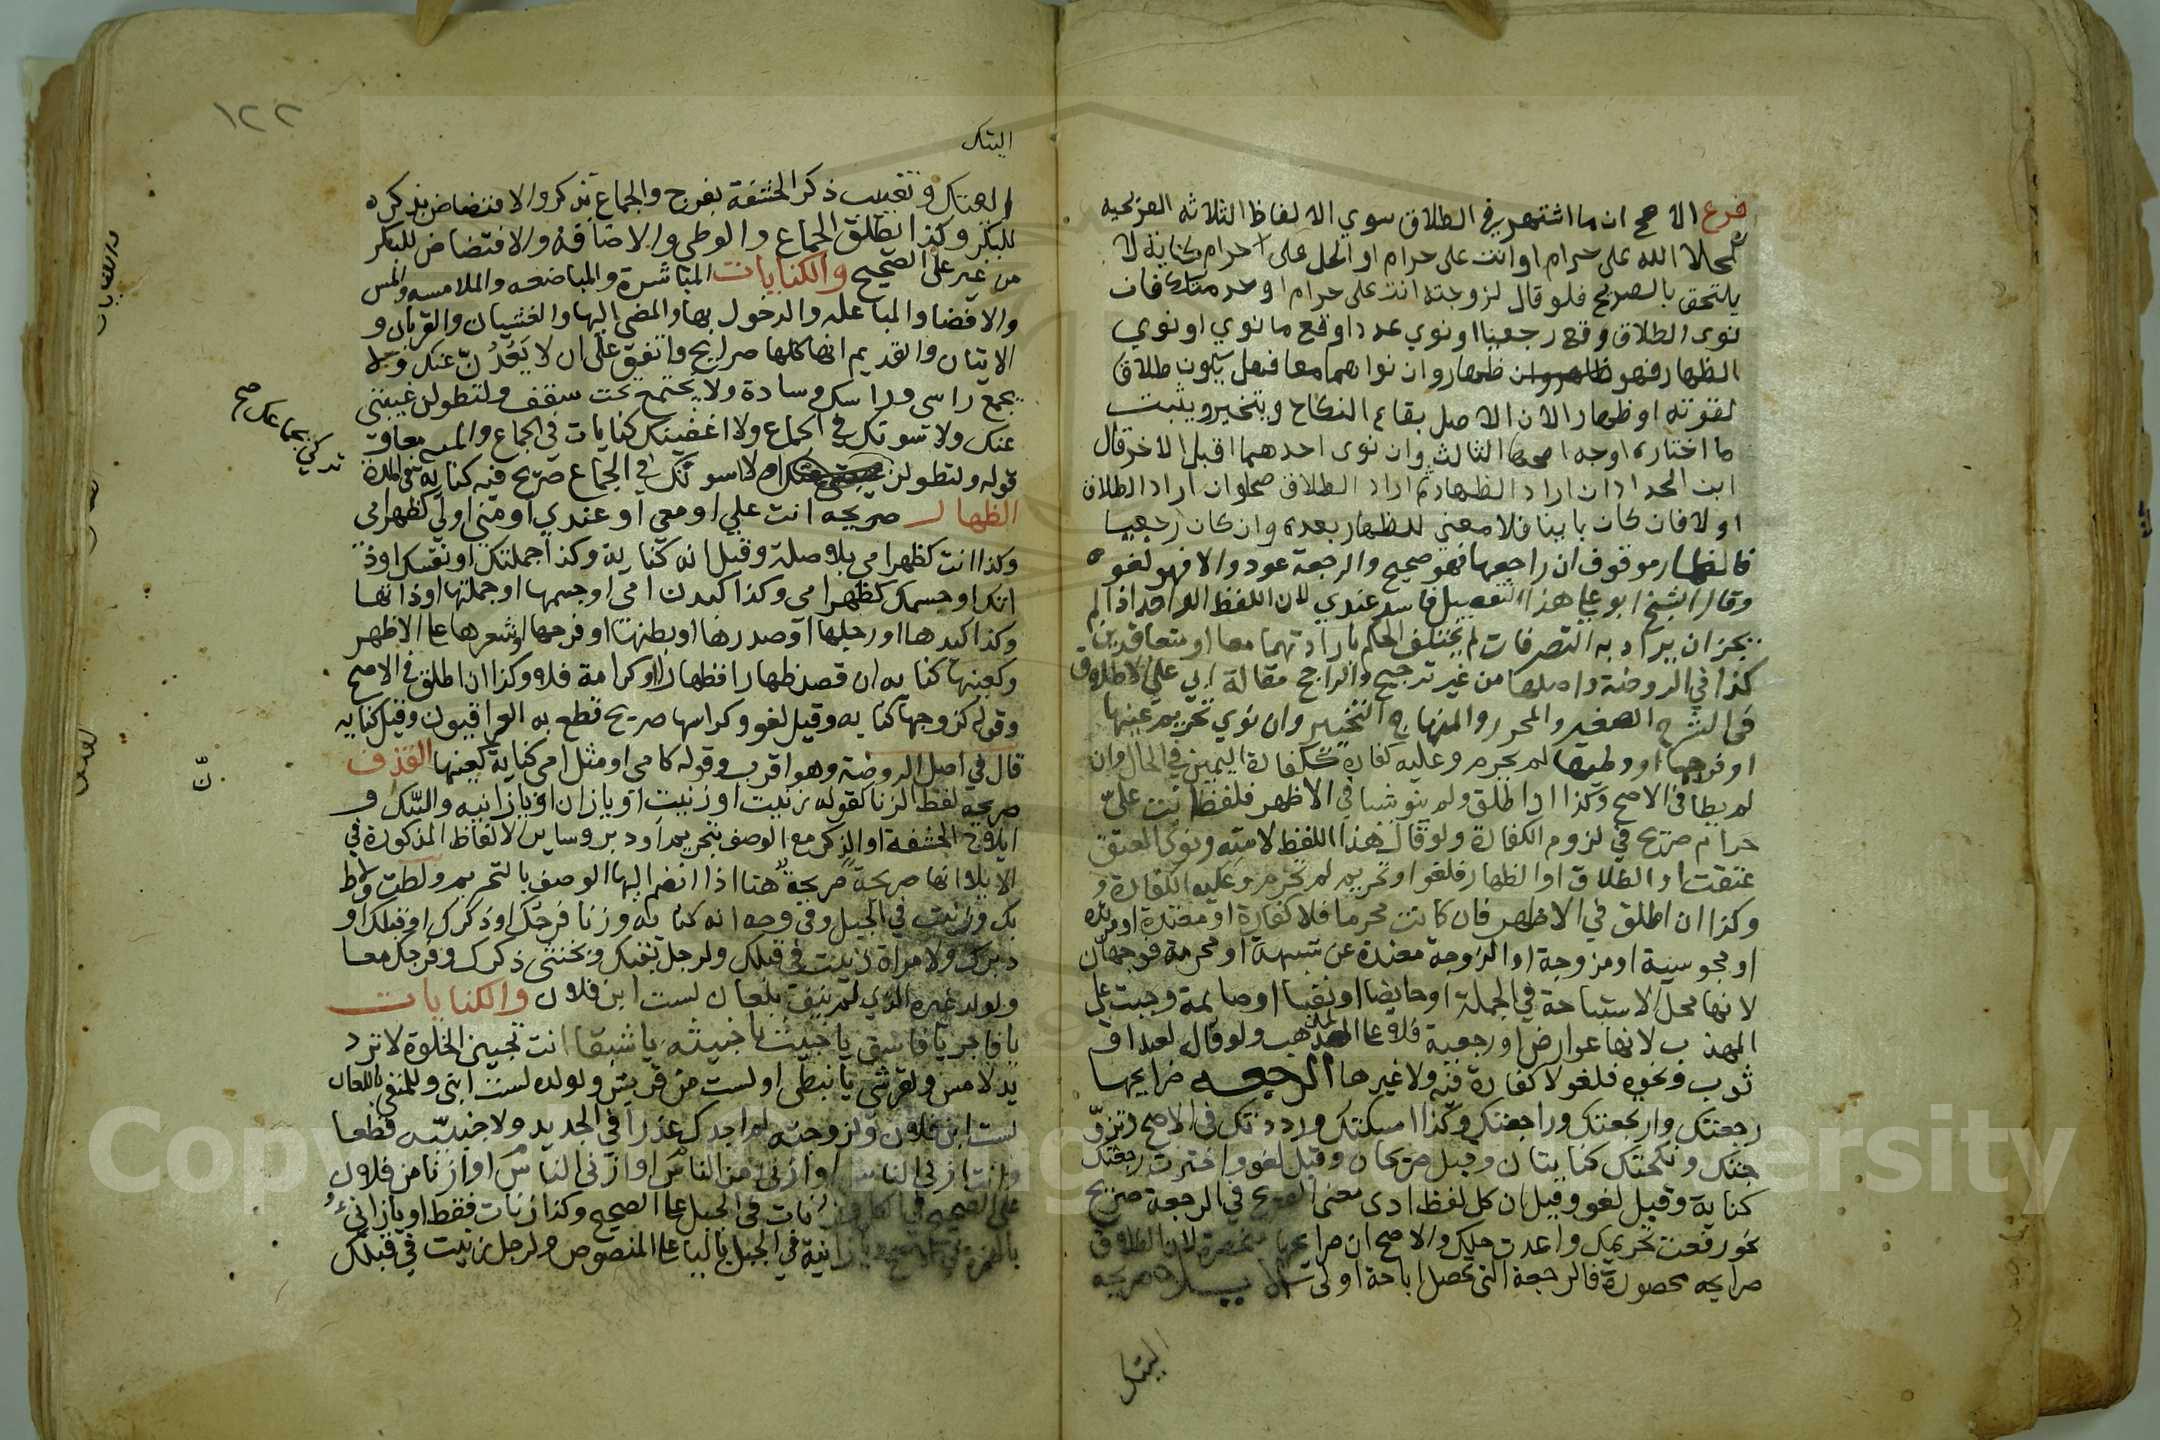 فرع الاصح ان ما اشتهر في الطلاق سوي الالفاظ الثلاثه الصريحيه
كحلال الله على حرام او انت على حرام او الحل على حرام كناية لا
يلتحق بالصريح فلو قال لزوجته انت على حرام او حرمتك فان
نوى الطلاق وقع رجعيا او نوي عددا وقع ما نوي او نوي
الظهار فهو ظهار وان نواهما معا فهل يكون طلاق
لقوته او ظهار الان الاصل بقاء النكاح او يتخير ويثبت
ما اختاره اوجه اصحها الثالث وان نوى احدهما قبل الاخر قال
ابن الحداد ان اراد الظهار ثم اراد الطلاق صحا وان اراد الطلاق
اولا فان كان باينا فلا معنى للظهار بعده وان كان رجعيا
فالظهار موقوف ان راجعها فهو صحيح والرجعة عود والا فهو لغو
وقال الشيخ ابو علي هذا التفصيل فاسد عندي لان اللفظ الواحد اذا لم
يجز ان يراد به التصرفات لم يختلف الحكم بارادتهما معا او متعاقبين
كذا في الروضة واصلها من غير ترجيح والراجح مقالة ابي علي لاطلاق
في الشرح الصغير والمحرر والمنهاج التخيير وان نوي تحريم عينها
او فرجها او وطيها لم يحرم وعليه كفارة ككفارة اليمين في الحال وان
لم يطا في الاصح وكذا اذا اطلق ولم ينو شيا في الاظهر فلفظ انت علىّ
حرام صريح في لزوم الكفارة ولو قال هذا اللفظ لامته ونوى العتق
عتقت او الطلاق او الظهار فلغو او تحريم لم تحرم وعليه الكفارة
وكذا ان اطلق في الاظهر فان كانت محرما فلا كفارة او معتدة او مرتده
او مجوسية او مزوجة او الزوجة معتدة عن شبهة او محرمة فوجهان
لانها محل الاستباحة في الجملة او حايضا او نفسا او صايمة وجبت على
المهذب لانها عوارض او رجعية فلا على المذهب ولو قال لعبد او
ثوب ونحوه فلغو لا كفارة فيه ولا غيرها الرجعه صرايحها
رجعتك وارتجعتك وراجعتك وكذا امسكتك ورددتك في الاصح وتزو
جتك ونكحتك كنايتان وقيل صريحان وقيل لغو واخترت رجعتك
كناية وقيل لغو وقيل ان كل لفظ ادى معنى الصريح في الرجعة صريح
نحو رفعت تحريمك واعدت حلك والاصح ان صرايحها منحصرة لان الطلاق
صرايحه محصورة فالرجعة التي تحصل اباحة اولى الايلا صريحه
البتك
١٢٢
البتك
وتغييب ذكر الحشفة بفرج والجماع بذكر والافتضاض بذكره
للبكر وكذا يطلق الجماع والوطي والاصابة والافتضاض للبكر
من غير على الصحيح والكنايات المباشرة والمباضعه والملامسه والمس
والافضا والمباعله والدخول بها والمضي اليها والغشيان والقربان و
الاتيان والقديم انها كلها صرايح واتفق على ان لا يبعدن عنك ولا
يجمع راسي وراسك وسادة ولا يجتمع تحت سقف ولتطولن غيبتي
عنك ولا سوتك في الجماع ولا اغضينك كنايات في الجماع والمده معا وقد
قوله ولتطولن لاسوتك في الجماع صريح فيه كنايه في المدة
تركي جماعك صح
الظهار صريحه انت علي او معي او عندي او مني او لي كظهر امي
وكذا انت كظهر امي بلا صلة وقيل انه كناية وكذا جملتك او نفسك او ذ
اتك او جسمك كظهر امي وكذا كبدن امي او جسمها او جملتها او ذاتها
وكذا كيدها او رجلها او صدرها او بطنها او فرجها او شعرها على الاظهر
وكعينها كنايه ان قصد ظهارا فظهار او كرامة فلا وكذا ان اطلق في الاصح
وقوله كزوجها كنايه وقيل لغو وكراسها صريح قطع به العراقيون وقيل كنايه
قال في اصل الروضة وهو اقرب وقوله كامي او مثل امي كناية كعينها القذف
صريحه لفظ الزنا كقوله زنيت او زنيت او يا زان او يا زانيه والنيك و
ايلاج الحشفة او الذكر مع الوصف بتحريم او دبر وساير الالفاظ المذكورة في
الايلا انها صريحة صريحة هنا اذا انضم اليها الوصف بالتحريم ولطت ولاط
بك وزنيت في الجبل وفي وجه انه كنايه وزنا فرجك او ذكرك او قبلك او
دبرك ولامراة زنيت في قبلك ولرجل بقبلك وبخنثى ذكرك وفرجك معا
ولولد غيره الذي لم ينف بلعان لست ابن فلان والكنايات
يا فاجر يا فاسق يا خبيث يا خبيثه يا شبقا انت تحبين الخلوة لا ترد
يد لامس ولقرشي يا نبطي او لست من قريش ولولده لست ابني وللمنفي باللعان
لست ابن فلان ولزوجته لم اجدك عذرا في الجديد ولاجنبيّه قطعا
وانت ازنى الناس او ازنى من الناس او ازنى الناس او ازنا من فلان
على الصحيح في الكل وزنات في الجبل على الصحيح وكذا زنات فقط او يا زانئ
بالهمزة في الاصح ويا زانية في الجبل باليا على المنصوص ولرجل زنيت في قبلك